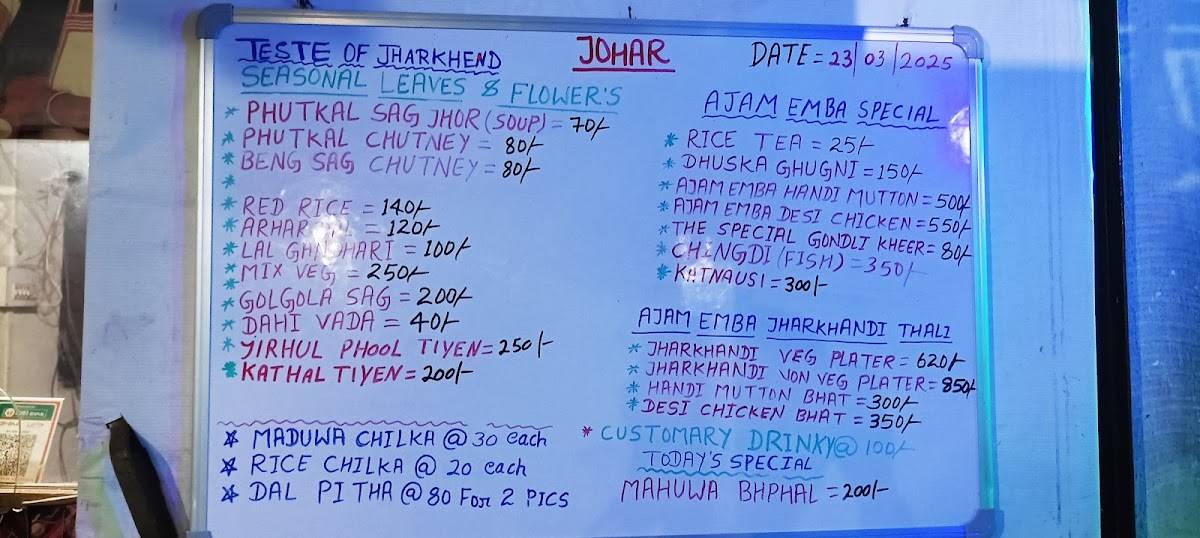 TESTE OF JHARKHEND
JOHAR
DATE = 23/03/2025
SEASONAL LEAVES & FLOWER'S
* PHUTKAL SAG JHOR (SOUP) = 70/-
* PHUTKAL CHUTNEY = 80/-
* BENG SAG CHUTNEY = 80/-
*
* RED RICE = 140/-
* ARHAR = 120/-
* LAL GANDHARI = 100/-
* MIX VEG = 250/-
* GOLGOLA SAG = 200/-
* DAHI VADA = 40/-
* JIRHUL PHOOL TIYEN = 250/-
* KATHAL TIYEN = 200/-
☆ MADUWA CHILKA @ 30 each
☆ RICE CHILKA @ 20 each
☆ DAL PITHA @ 80 For 2 PICS
AJAM EMBA SPECIAL
* RICE TEA = 25/-
* DHUSKA GHUGNI = 150/-
* AJAM EMBA HANDI MUTTON = 500/-
* AJAM EMBA DESI CHICKEN = 550/-
* THE SPECIAL GONDLI KHEER = 80/-
* CHINGDI (FISH) = 350/-
* KATNAUSI = 300/-
AJAM EMBA JHARKHANDI THALI
* JHARKHANDI VEG PLATER = 620/-
* JHARKHANDI NON VEG PLATER = 850/-
* HANDI MUTTON BHAT = 300/-
* DESI CHICKEN BHAT = 350/-
* CUSTOMARY DRINKY @ 100/-
TODAY'S SPECIAL
MAHUWA BHPHAL = 200/-